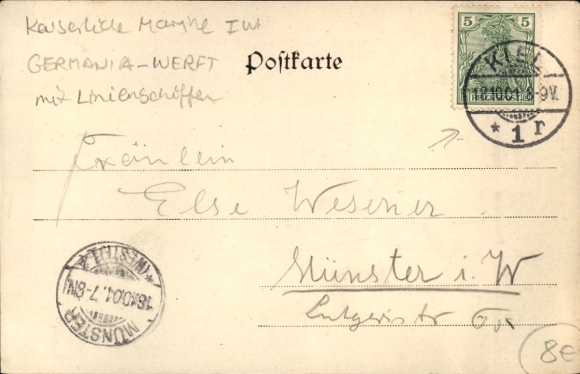 Kaiserliche Marine I WK
GERMANIA-WERFT
mit Linienschiffen
Postkarte
5 5
REICHSPOST
KIEL
18.10.01.8-9V.
* 1 r
Fräulein
Else Weserer
Münster i. W
MÜNSTER
18.10.01.7-8N.
*(WESTF.)1.*
8€